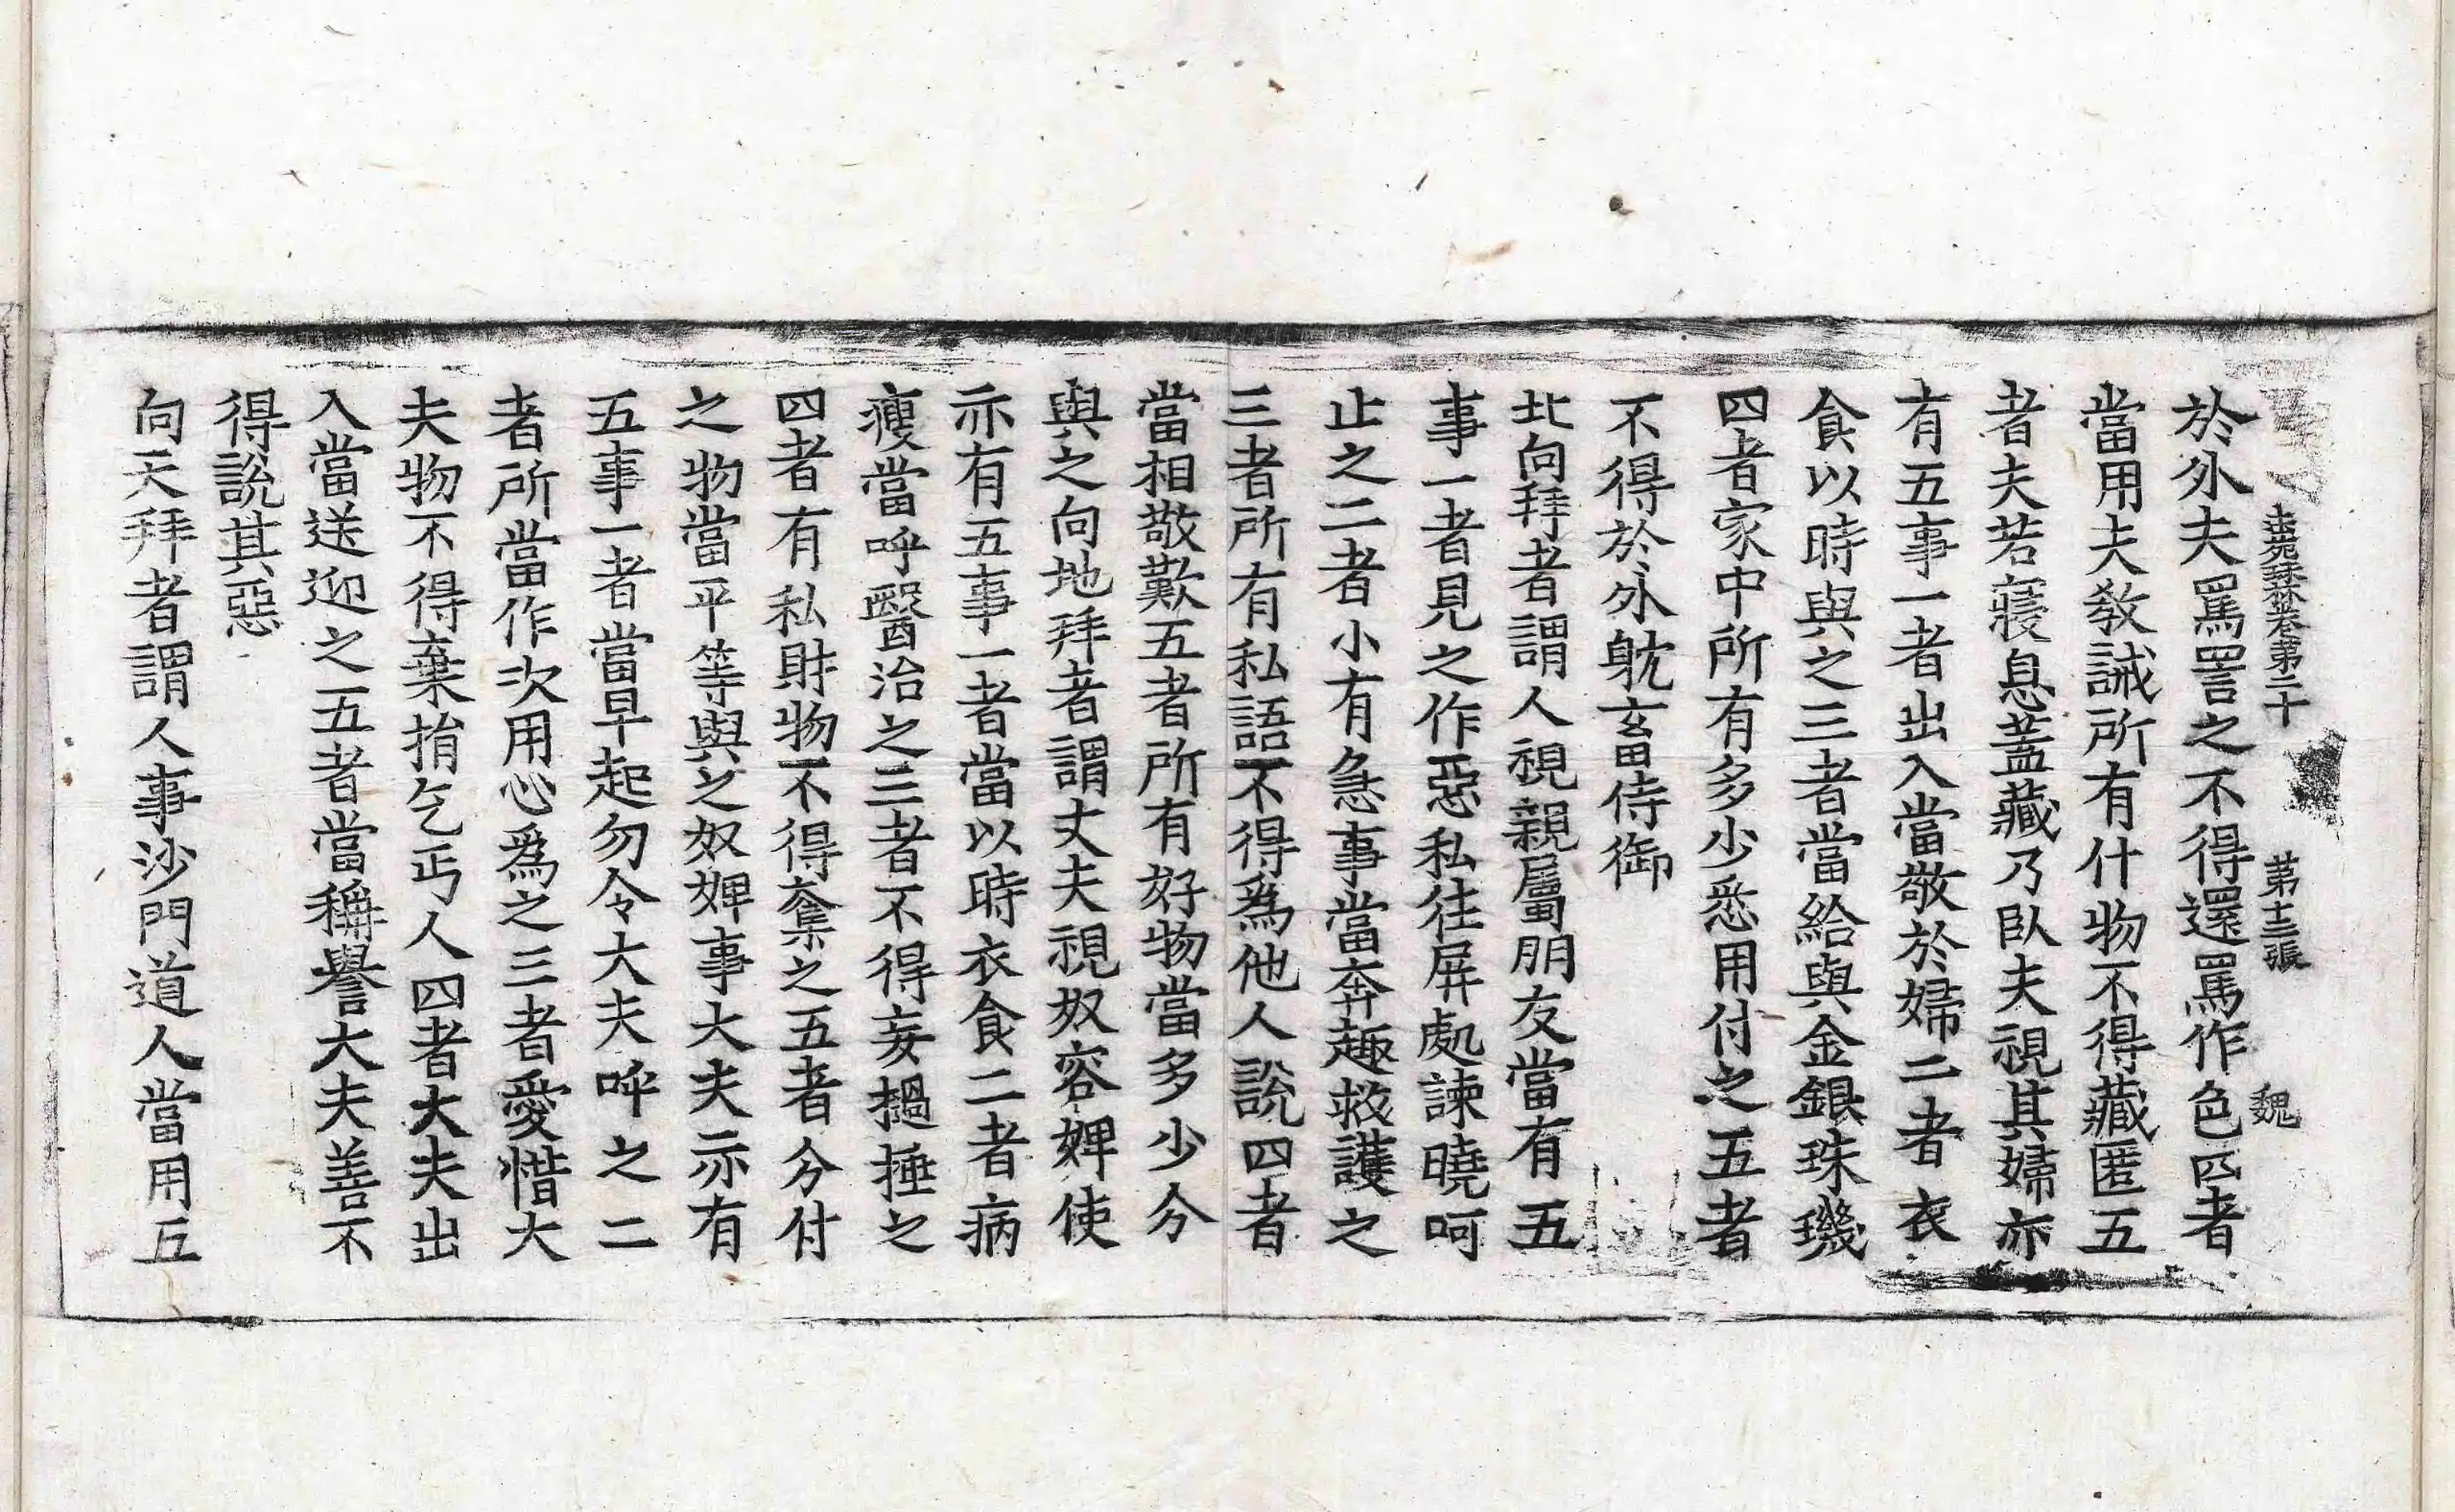 法苑珠林卷第二十 第十三張 魏
於外夫罵詈之不得還罵作色四者
當用夫教誡所有什物不得藏匿五
者夫若寢息蓋藏乃臥夫視其婦亦
有五事一者出入當敬於婦二者衣
食以時與之三者當給與金銀珠璣
四者家中所有多少悉用付之五者
不得於外躭畜侍御
北向拜者謂人視親屬朋友當有五
事一者見之作惡私往屏處諫曉呵
止之二者小有急事當奔趣救護之
三者所有私語不得為他人說四者
當相敬歎五者所有好物當多少分
與之向地拜者謂丈夫視奴客婢使
亦有五事一者當以時衣食二者病
瘦當呼醫治之三者不得妄撾捶之
四者有私財物不得奪之五者分付
之物當平等與之奴婢事大夫亦有
五事一者當早起勿令大夫呼之二
者所當作次用心為之三者愛惜大
夫物不得棄捐乞丐人四者大夫出
入當送迎之五者當稱譽大夫善不
得說其惡
向天拜者謂人事沙門道人當用五